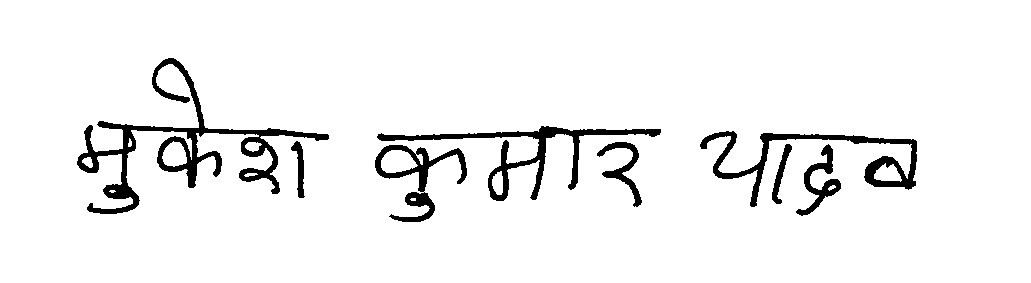 मुकेश कुमार यादव